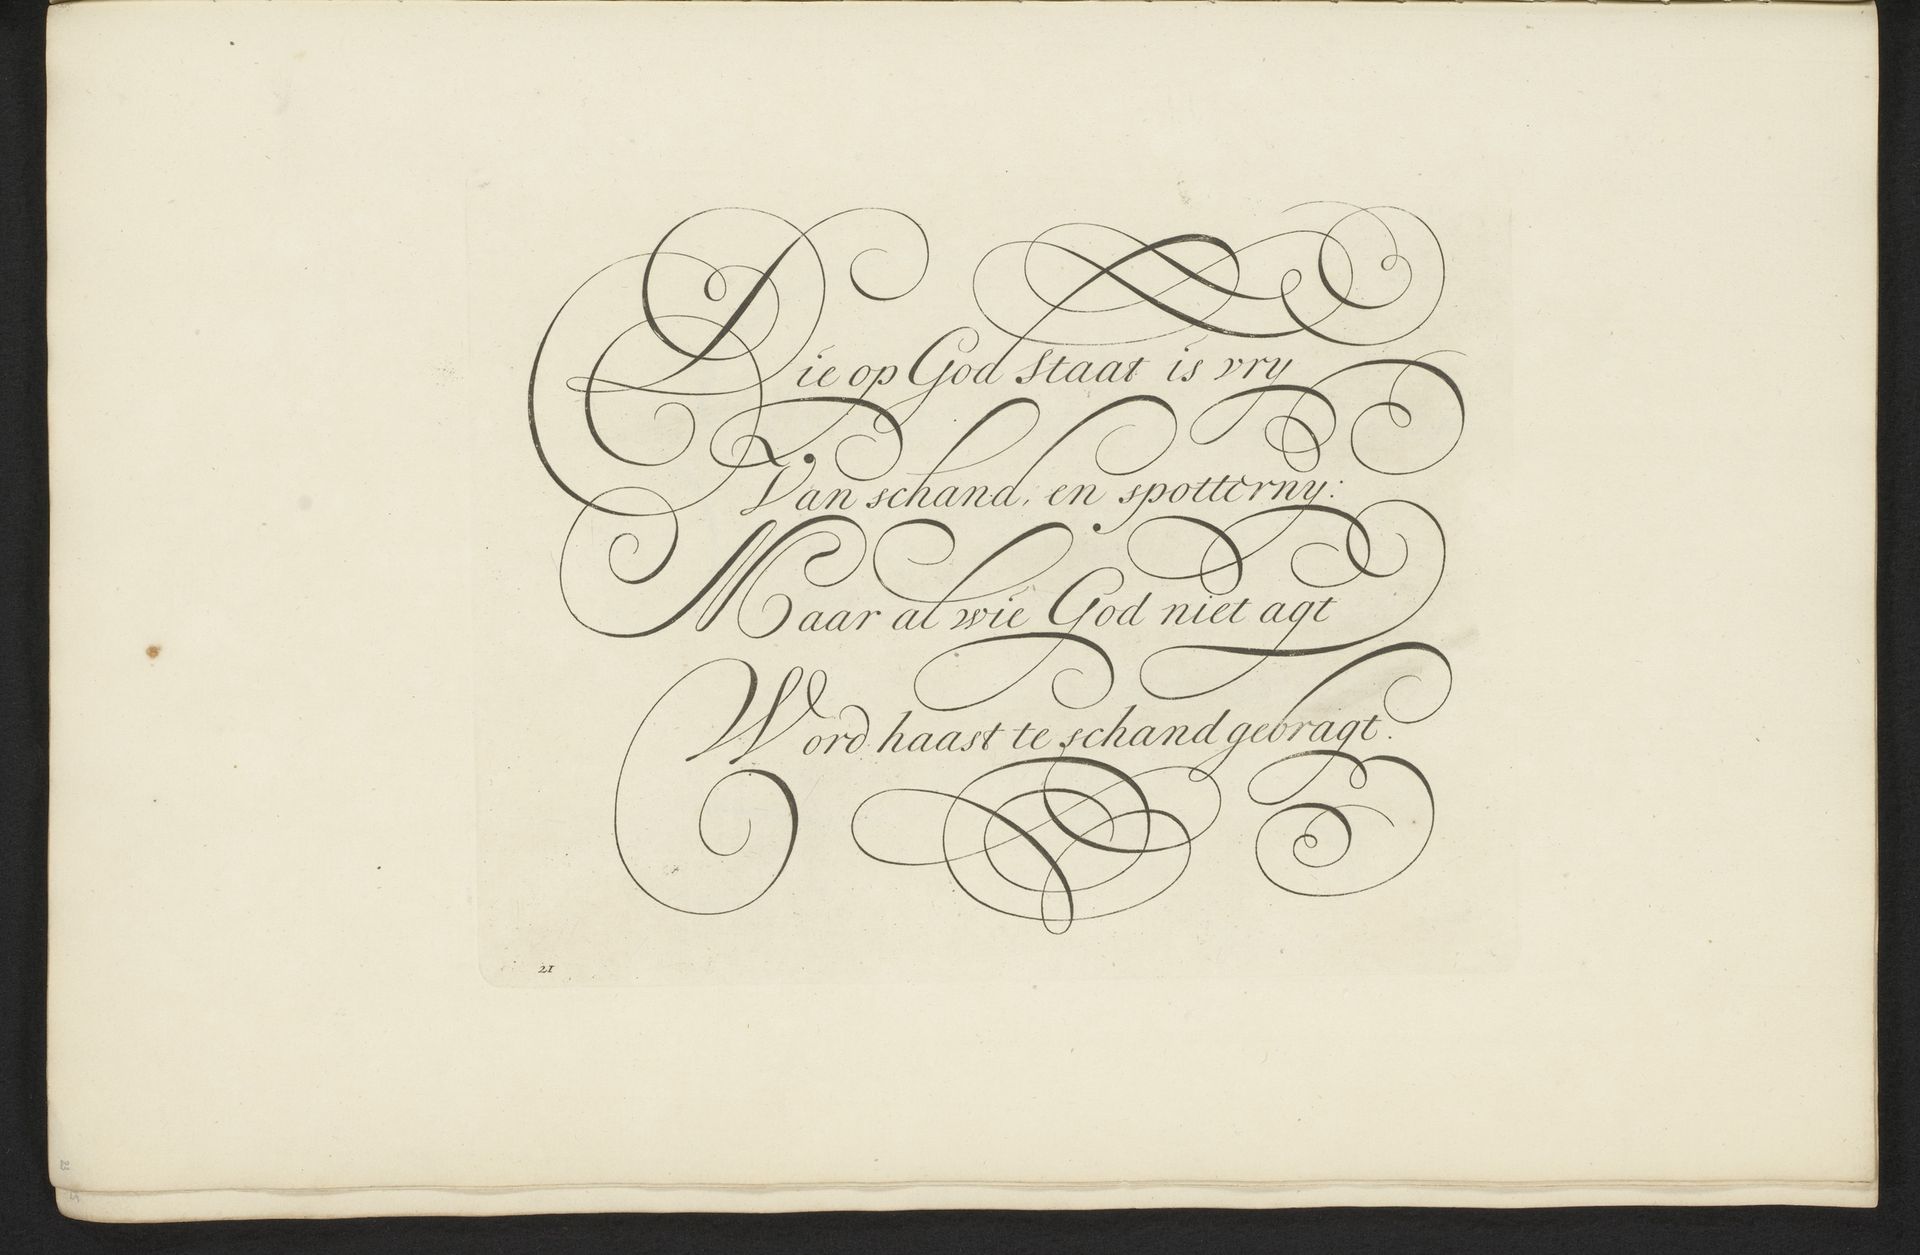 Die op God staat is vry
Van schand, en spotterny:
Maar al wie God niet agt
Word haast te schand gebragt.
21